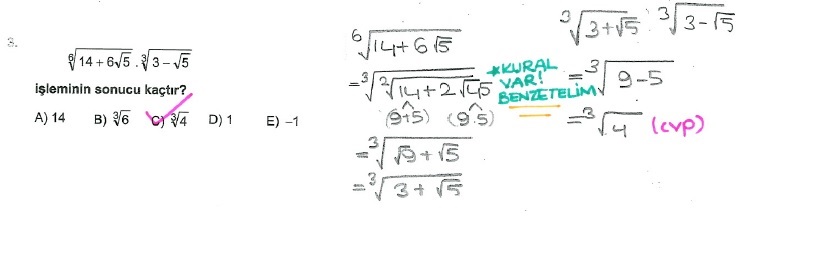 3.
⁶√14 + 6√5 . ³√3 − √5
işleminin sonucu kaçtır?
A) 14 B) ³√6 C) ³√4 D) 1 E) −1
⁶√14+6√5
=³√²√14+2√45
(9+5) (9.5)
=³√√9+√5
=³√3+√5
*KURAL
VAR!
BENZETELİM
³√3+√5 . ³√3-√5
=³√9-5
=³√4 (cvp)